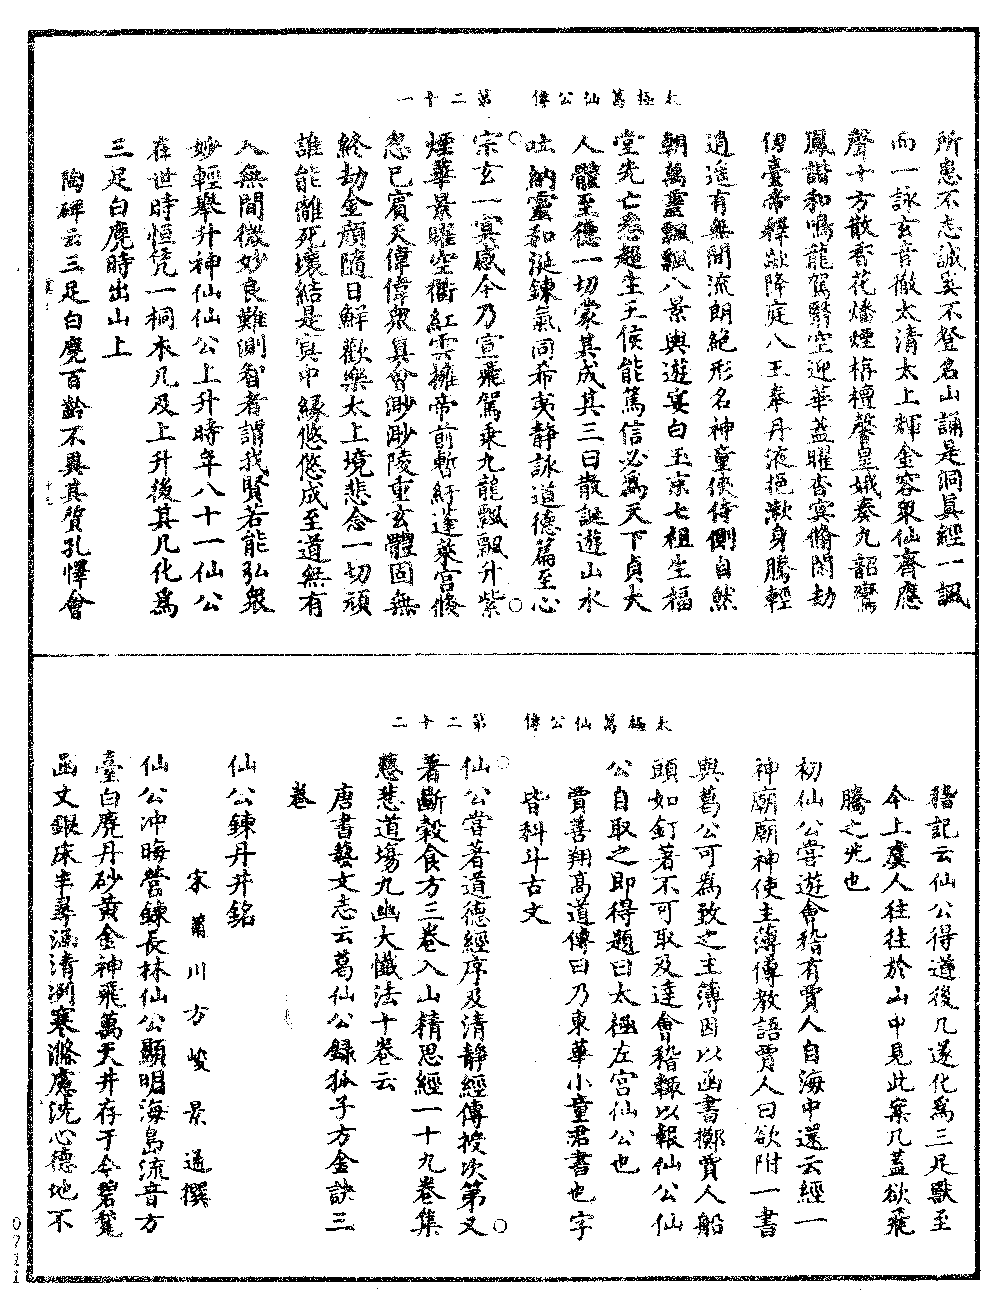 太極葛仙公傳　第二十一
所患不志誠奚不登名山誦是洞真經一諷
而一詠玄音徹太清太上輝金容衆仙齊應
聲十方散香花燔煙栴檀馨皇娥奏九韶鸞
鳳諧和鳴龍駕翳空迎華蓋曜杳冥翛閑劫
仞臺帝釋歘降庭八王奉丹液挹漱身騰輕
逍遥有無間流朗絶形名神童俠侍側自然
朝萬靈飄飄八景輿遊宴白玉京七祖生福
堂先亡悉超生王侯能篤信必爲天下貞大
人體至德一切蒙其成其三曰散誕遊山水
吐納靈和涎鍊氣同希夷静詠道德篇至心
宗玄一冥感今乃宣飛駕乘九龍飄飄升紫
煙華景曜空衢紅雲擁帝前暫紆蓬萊宮倏
忽已賓天偉偉衆真會渺渺陵重玄體固無
終劫金顏隨日鮮歡樂太上境悲念一切頑
誰能離死壞結是冥中緣悠悠成至道無有
入無間微妙良難測智者謂我賢若能弘衆
妙輕舉升神仙仙公上升時年八十一仙公
在世時恒凭一桐木几及上升後其几化爲
三足白麂時出山上
陶碑云三足白麂百齡不異其質孔懌會
太極葛仙公傳　第二十二
稽記云仙公得道後几遂化爲三足獸至
今上虞人往往於山中見此案几蓋欲飛
騰之兆也
初仙公嘗遊會稽有賈人自海中還云經一
神廟廟神使主簿傳教語賈人曰欲附一書
與葛公可爲致之主簿因以函書擲賈人船
頭如釘著不可取及達會稽輒以報仙公仙
公自取之即得題曰太極左宮仙公也
賈善翔高道傳曰乃東華小童君書也字
皆科斗古文
仙公嘗著道德經序及清静經傳授次第又
著斷穀食方三卷入山精思經一十九卷集
慈悲道場九幽大懺法十卷云
唐書藝文志云葛仙公録狐子方金訣三
卷
仙公鍊丹井銘
宋莆川方峻景通撰
仙公沖晦營鍊長林仙公顯明海島流音方
臺白麂丹砂黄金神飛萬天井存于今碧甃
函文銀床半尋涵清冽寒滌慮洗心德地不